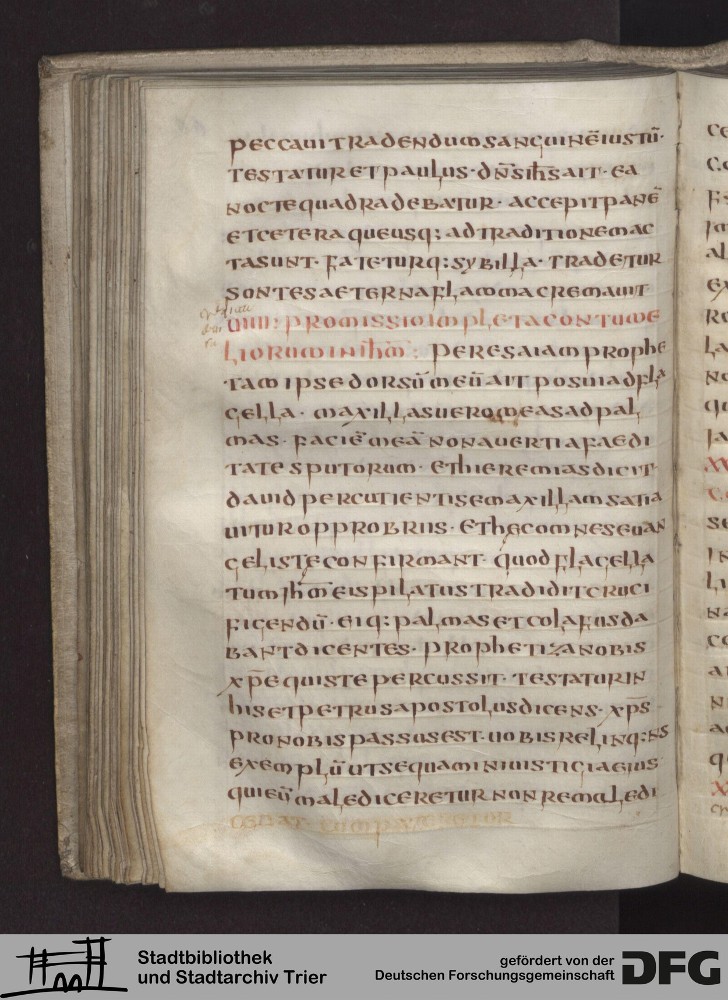 peccaui tradendum sanguinē iustū·
testatur et paulus· dn̄s ih̄s ait· ea
nocte qua tradebatur· accepit panē
et cetera queusq; ad traditionem ac
ta sunt· fatetur q: sybilla· tradetur
sontes aeterna flamma cremauit
uiiii: promissio impleta contume
liorum in ih̄m: per esaiam prophe
tam ipse dorsū meū ait posui ad fla
gella· maxillas uero meas ad pal
mas· faciē meā non auerti a faedi
tate sputorum· et hieremias dicit
dauid percutienti se maxillam satia
uitur opprobriis· et hec omnes euan
gelistę confirmant· quod flagella
tum ih̄m eis pilatus tradidit cruci
figendū· ei q: palmas et colafus da
bant dicentes· prophetiza nobis
xp̄e quis te percussit· testatur in
his et petrus apostolus dicens· xp̄s
pro nobis passus est· uobis relinq:ns
exemplū ut sequamini uisticia eius
qui eū malediceretur non remaledi
Stadtbibliothek
und Stadtarchiv Trier
gefördert von der
Deutschen Forschungsgemeinschaft
DFG